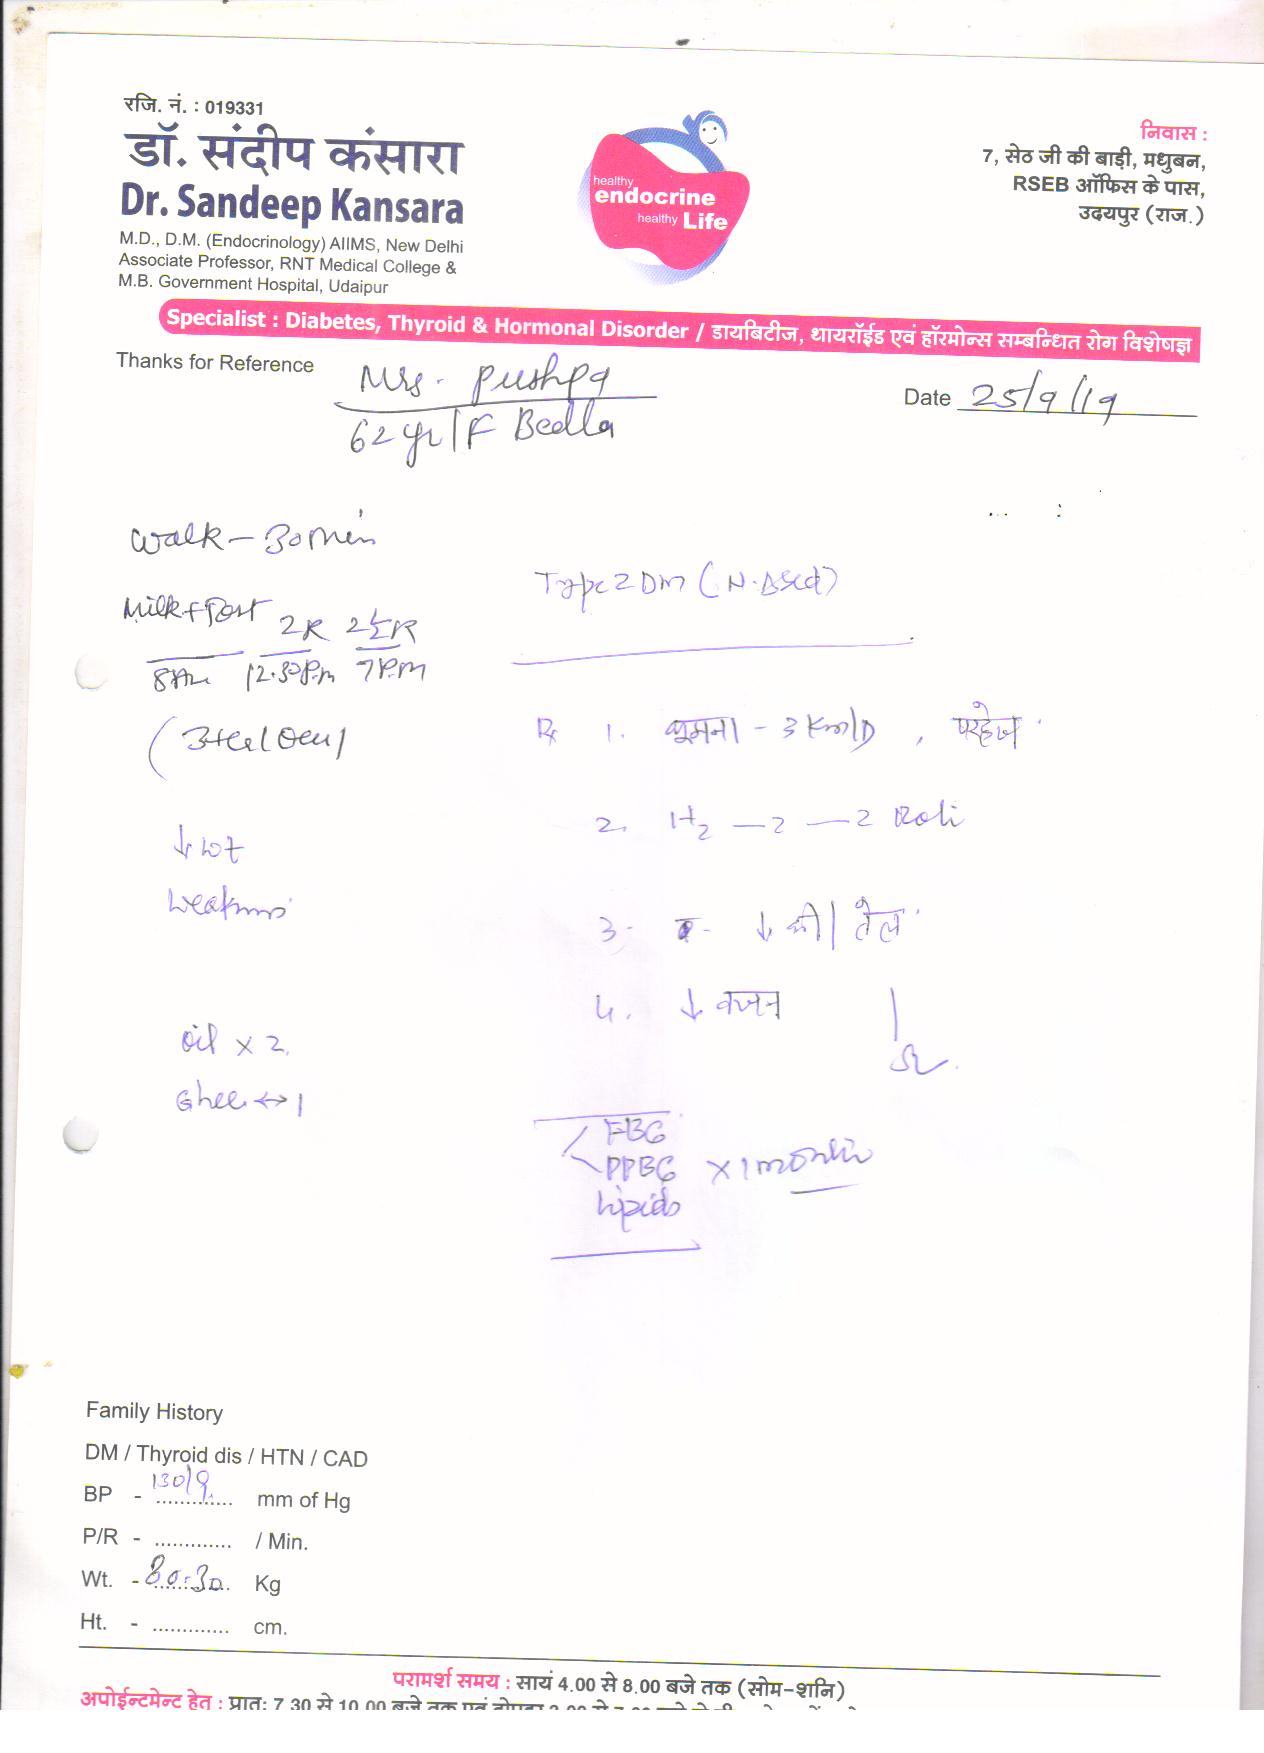 रजि. नं. : 019331
डॉ. संदीप कंसारा
Dr. Sandeep Kansara
M.D., D.M. (Endocrinology) AIIMS, New Delhi
Associate Professor, RNT Medical College &
M.B. Government Hospital, Udaipur
healthy
endocrine
healthy Life
निवास :
7, सेठ जी की बाड़ी, मधुबन,
RSEB ऑफिस के पास,
उदयपुर (राज.)
Specialist : Diabetes, Thyroid & Hormonal Disorder / डायबिटीज, थायरॉईड एवं हॉरमोन्स सम्बन्धित रोग विशेषज्ञ
Thanks for Reference Mrs. Pushpa
Date 25/9/19
62 yr/F Bedla
Walk - 30 min
Type 2 DM
Milk +
2R 2½R
8AM 12.30Pm 7P.M
Rx 1. घूमना - 3 Km/D, परहेज
↓ wt
2. - 2 - 2 Roti
Weakness
3. ↓ घी/तेल
4. ↓ वजन
Oil x 2
Ghee ↔ 1
FBG
PPBG x 1 month
Lipids
Family History
DM / Thyroid dis / HTN / CAD
BP - 130/9 mm of Hg
P/R - ............. / Min.
Wt. - 80.30 Kg
Ht. - ............. cm.
परामर्श समय : सायं 4.00 से 8.00 बजे तक (सोम-शनि)
अपोईन्टमेन्ट हेतु : प्रातः 7.30 से 10.00 बजे तक एवं